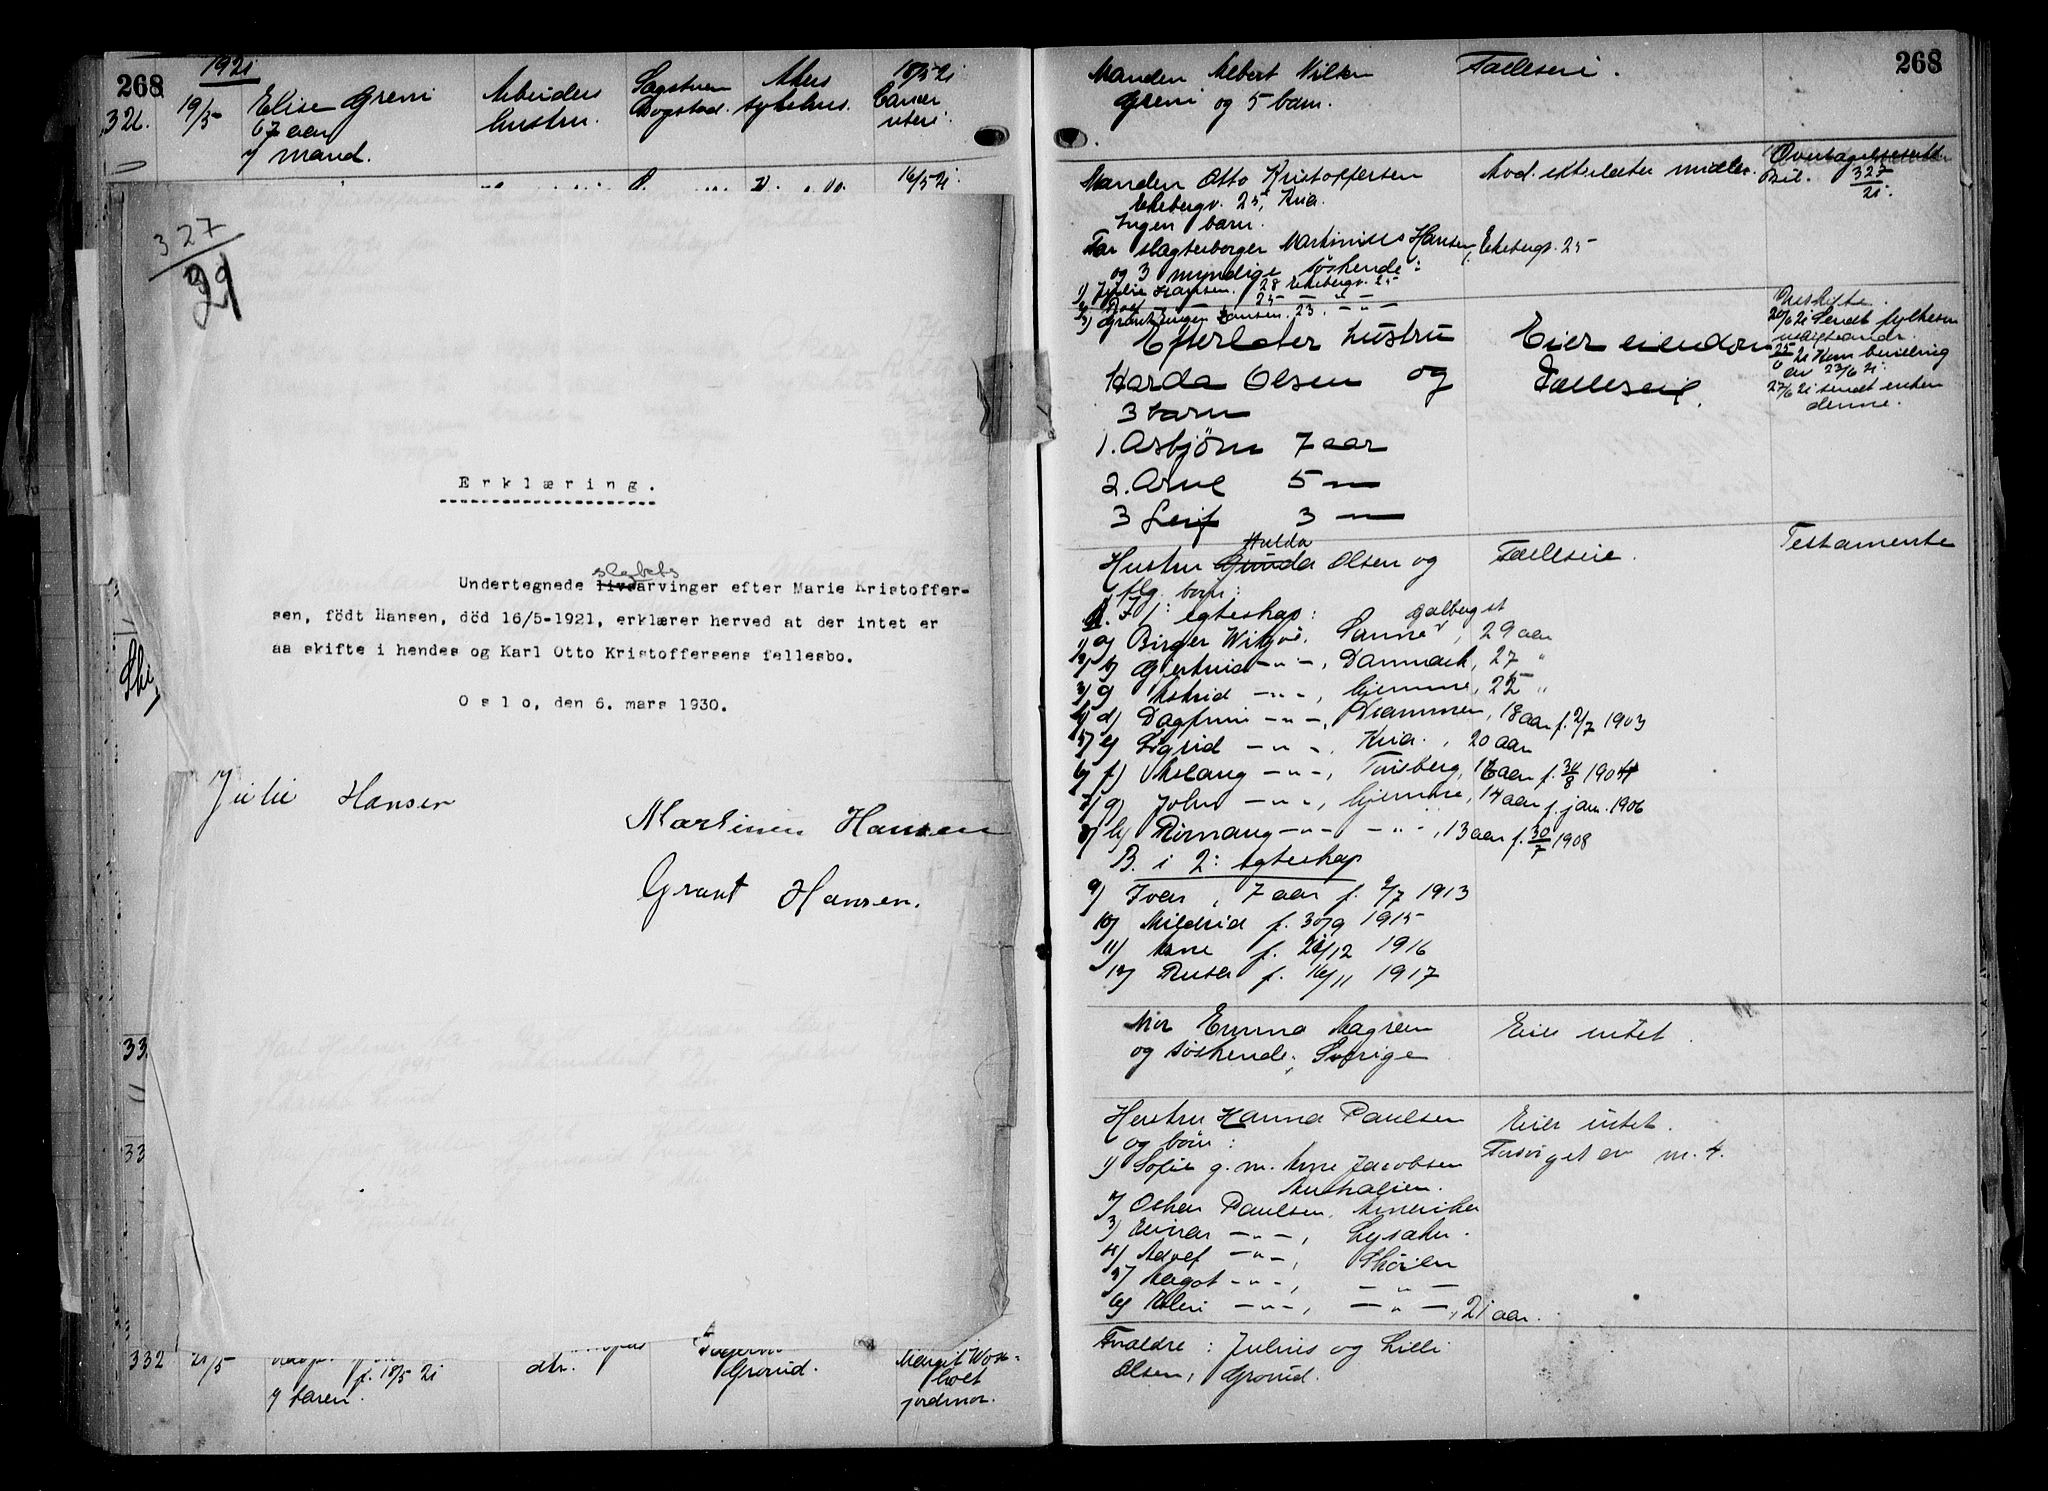 268
1921
326.
19/5
Elise Greni
67 aar
g mand.
Arbeiders
hustru.
Sagstuen
Bogstad.
Akers
sykehus.
18/5 21
Cancer
uteri.
16/5 21.
327
29
Erklæring.
slegtsts
Undertegnede livsarvinger efter Marie Kristoffer-
sen, födt Hansen, död 16/5-1921, erklærer herved at der intet er
aa skifte i hendes og Karl Otto Kristoffersens fellesbo.
Oslo, den 6. mars 1930.
Julie Hansen
Martinius Hansen
Grant Hansen.
Ski
33
33
332
21/5
f. 18/5 21
dtr.
Grorud.
Margit
holt
jordmor.
268
Manden Albert Nilsen
Greni og 5 barn.
Fælleseie.
Manden Otto Kristoffersen
Ekebergv. 25, Kria.
Ingen barn.
Far slagterborger Martinius Hansen, Ekebergv. 25
og 3 myndige søskende:
1) Julie Hansen. 28 Ekebergv. 25
25 - " -
3) Grant Hansen. 23. - " -
Mod. efterlater midler.
Overtagelsesattest
Bil. 327
21.
Efterlater hustru
Harda Olsen og
3 barn
1. Asbjörn 7 aar
2. Arne 5 -"-
3 Leif 3 -"-
Eier eiendom
Fælleseie.
Uskifte.
20/6 21 Sendt fylkesm
25/6 21 Kom bevilling
av 23/6 21.
27/6 21 sendt enken
denne.
Hulda
Hustru Gunda Olsen og
flg. barn:
A. I 1: egteskap:
1) a) Birger Witzø. Sanne, 29 aar
2) b) Gjertrud -"-, Danmark, 27 "
3) c) Astrid -"-, hjemme, 25 "
4) d) Dagfinn -"-, Drammen, 18 aar f. 2/7 1903
5) e) Sigrid -"-, Kria., 20 aar
6) f) Aslaug -"-, Tønsberg, 16 aar f. 30/8 1904
7) g) John -"-, hjemme, 14 aar f. jan. 1906
8) h) Rørnaug -"- -"-, 13 aar f. 30/7 1908
B. i 2: egteskap
9) Ivar, 7 aar f. 9/7 1913
10) Mildrid f. 30/9 1915
11) Arne f. 21/12 1916
12) Ruter f. 16/11 1917
Fælleseie.
Testamente
Mor Emma Magreen
og søskende, Sverige
Eier intet.
Hustru Hanna Paulsen
og börn:
1) Sofie g. m. Arne Jacobsen
Australien.
2) Oskar Paulsen, Amerika
3) Einar -"-, Lysaker.
4) Adolf -"-, Skøien
5) Margot -"-, -"-
6) -"-, -"-, 21 aar.
Eier intet.
Forsørget av nr. 4.
Forældre: Julius og Lilli
Olsen, Grorud.